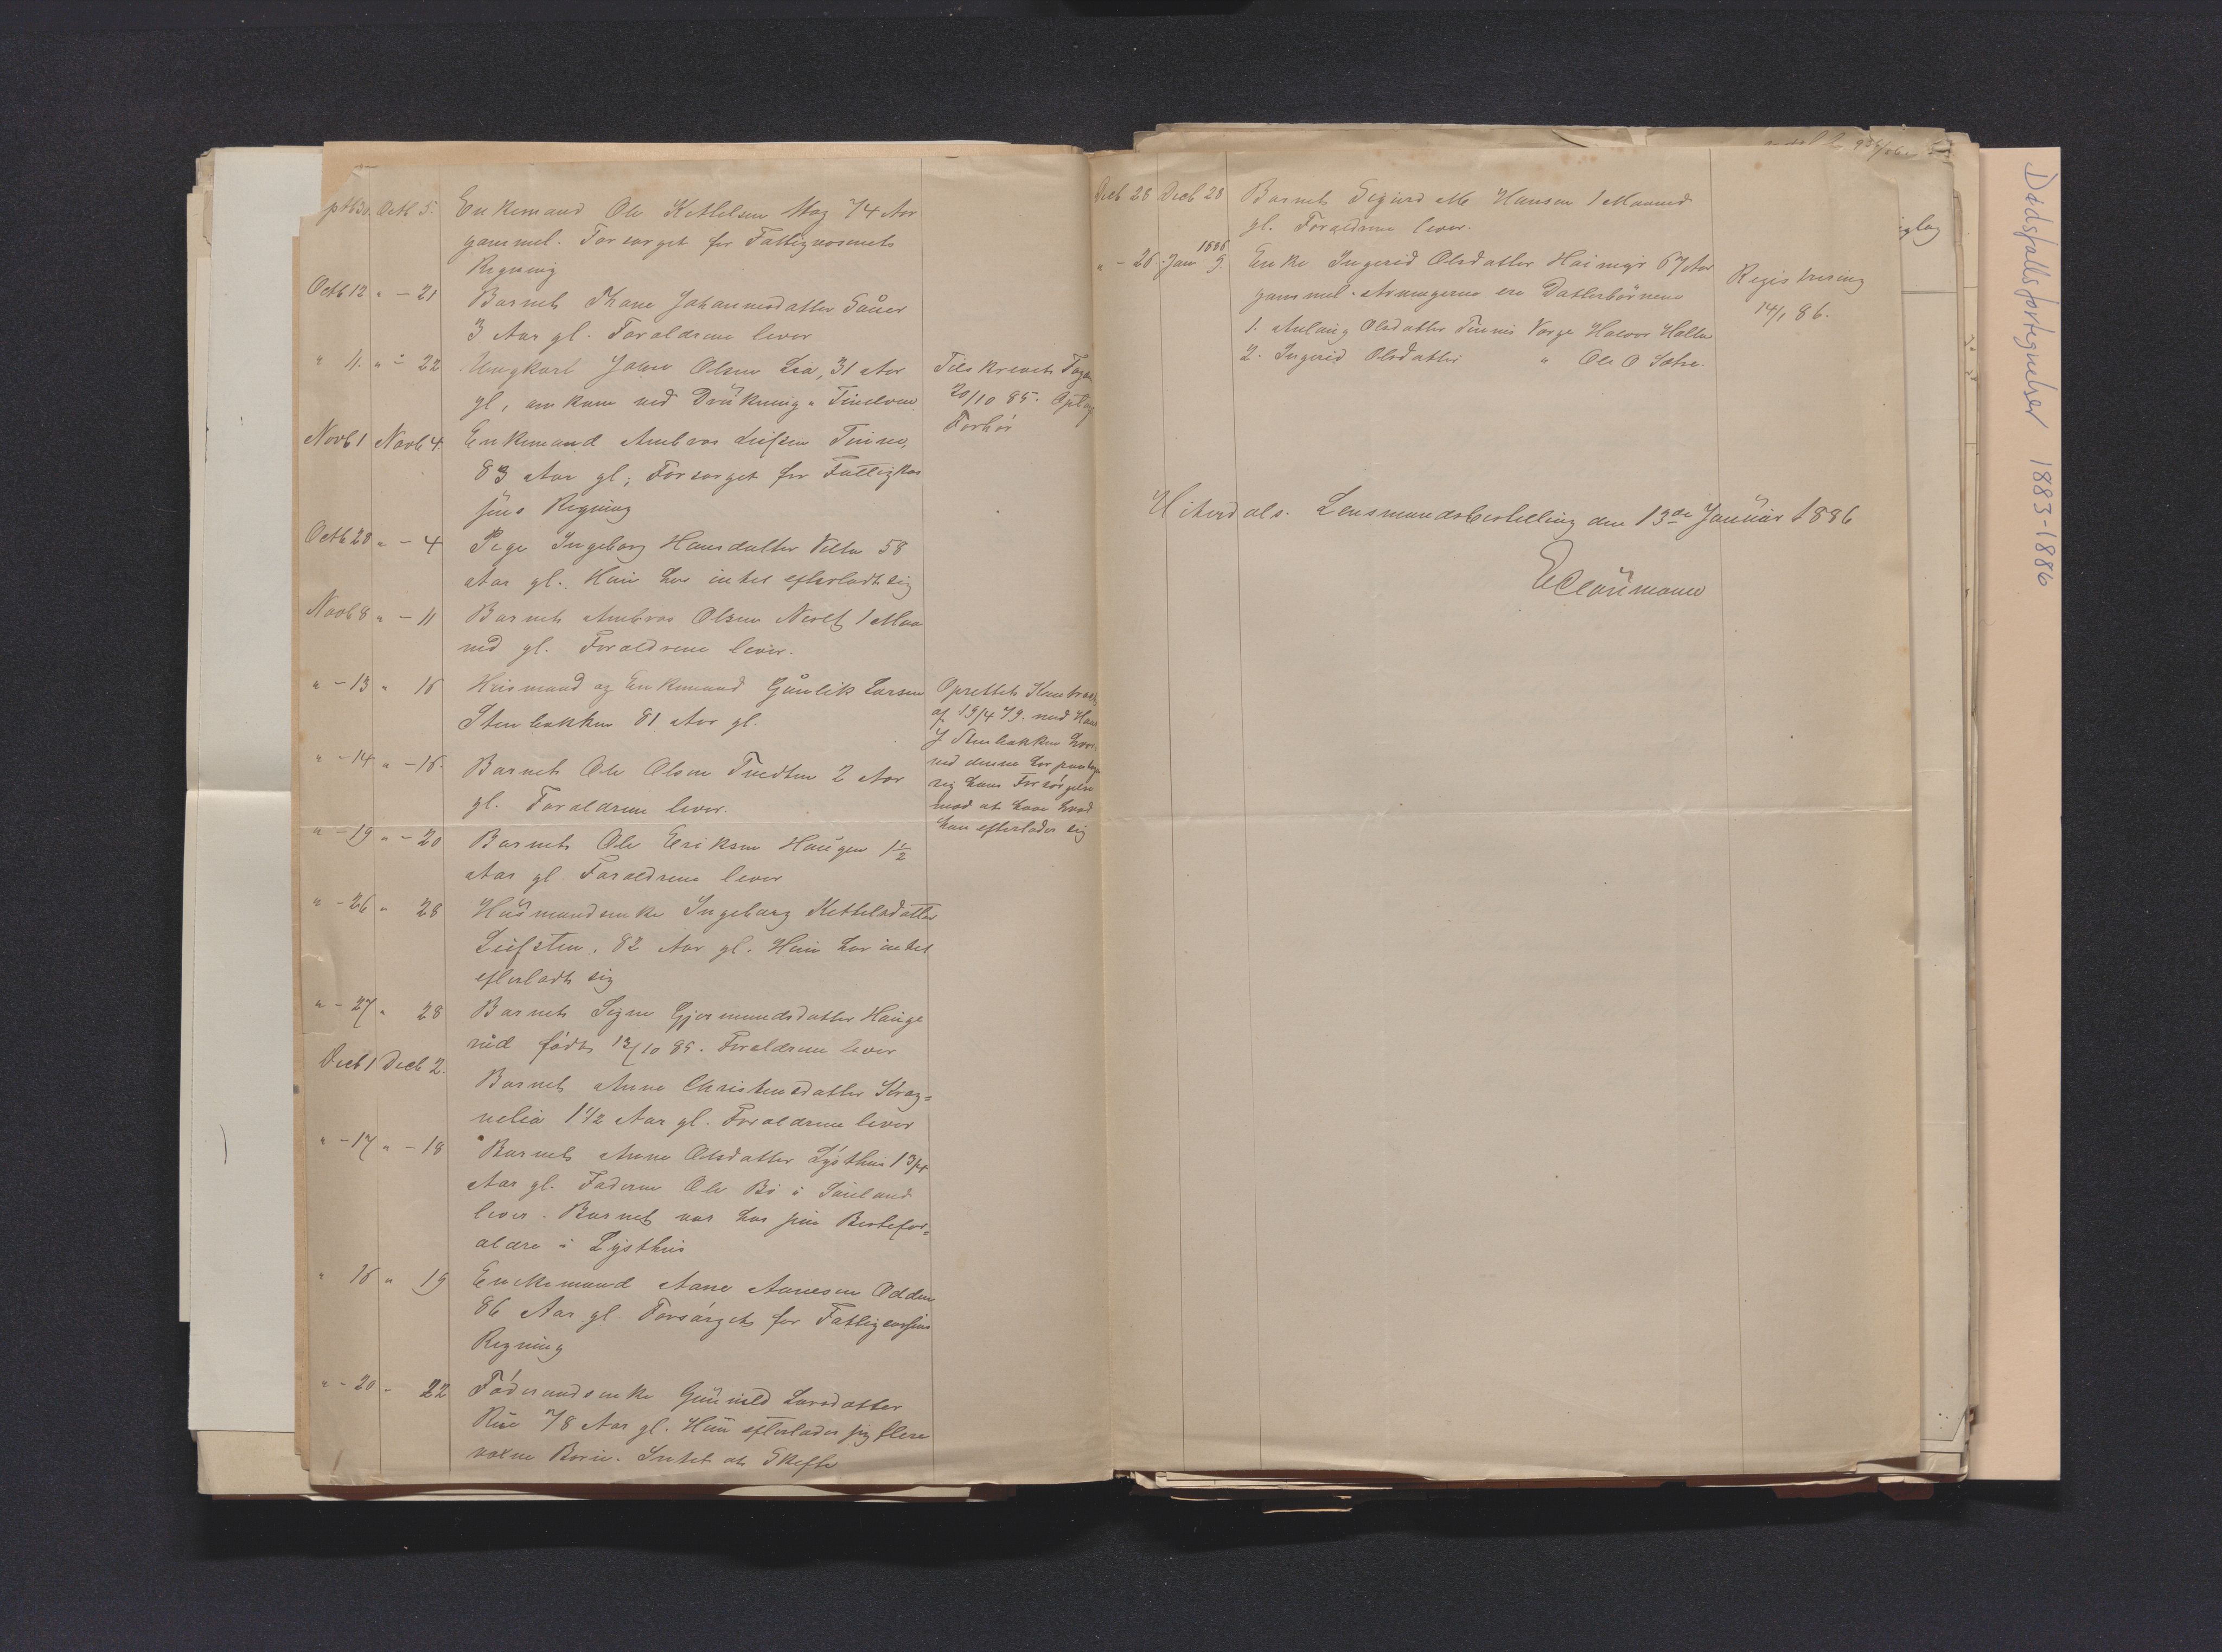 ptb30. Octb 5. Enkemand Ole Kettelsen Mog 74 Aar
gammel. Forsørget for Fattigvæsenets
Regning
Octb 12 " - 21 Barnet Thone Johannesdatter Sauer
3 Aar gl. Forældrene lever
" 11. " - 22 Ungkarl John Olsen Lia, 31 Aar
gl, omkom ved Drukning i Tinelven
Tilskrevet Foged
20/10 85. Optag
Forhør
Novb 1 Novb 4. Enkemand Ambros Leifsen Tinne,
83 Aar gl; Forsørget for Fattigkas
sens Regning
Octb 28 " - 4 Pige Ingeborg Hansdatter Velta 58
Aar gl. Hun har intet efterladt sig
Novb 8 " - 11 Barnet Ambros Olsen Næset 1 Maa
ned gl. Forældrene lever.
" - 13 " 16 Husmand og Enkemand Gunlik Larsen
Stenbakken 81 Aar gl.
Oprettet Kontract
af 19/4 79. med Hans
J Stenbakken hvor
ved denne har paataget
sig hans Forsørgelse
mod at have hvad
han efterlader sig
" - 14 " - 16. Barnet Ole Olsen Tvedten 2 Aar
gl. Forældrene lever.
" - 19 " - 20 Barnet Ole Eriksen Haugen 1½
Aar gl Forældrene lever
" - 26 " 28 Husmandsenke Ingeborg Kettelsdatter
Leifsten. 82 Aar gl. Hun har intet
efterladt sig
" - 27 " 28 Barnet Signe Gjermundsdatter Hauge
rud født 13/10 85. Forældrene lever
Decb 1 Decb 2. Barnet Anne Christensdatter Krag=
nelia 1 1/2 Aar gl. Forældrene lever
" - 17 " - 18 Barnet Anne Olsdatter Lysthus 1 3/4
Aar gl. Faderen Ole Bø i Sauland
lever. Barnet var hos sine Bestefor=
ældre i Lysthus
" 16 " 19 Enkemand Aane Aanesen Odden
86 Aar gl Forsørget for Fattigcassens
Regning
" - 20 - 22 Føderaadsenke Gunild Larsdatter
Rue 78 Aar gl. Hun efterlader sig flere
voxne Børn. Intet at Skifte
Decb 28 Decb 28 Barnet Sigurd Hansen 1 Maaned
gl. Forældrene lever.
" - 26. Jan 1886 9. Enke Ingerid Olsdatter Haimyr 67 Aar
gammel. Arvingerne ere Datterbørnene
1. Aslaug Olsdatter Tinnes Værge Halvor Holten
2. Ingerid Olsdatter " Ole O Sætre.
Registrering
14/1 86.
Hiterdals. Lensmandsbestilling den 13de Januar 1886
Dødsfallsfortegnelser 1883-1886